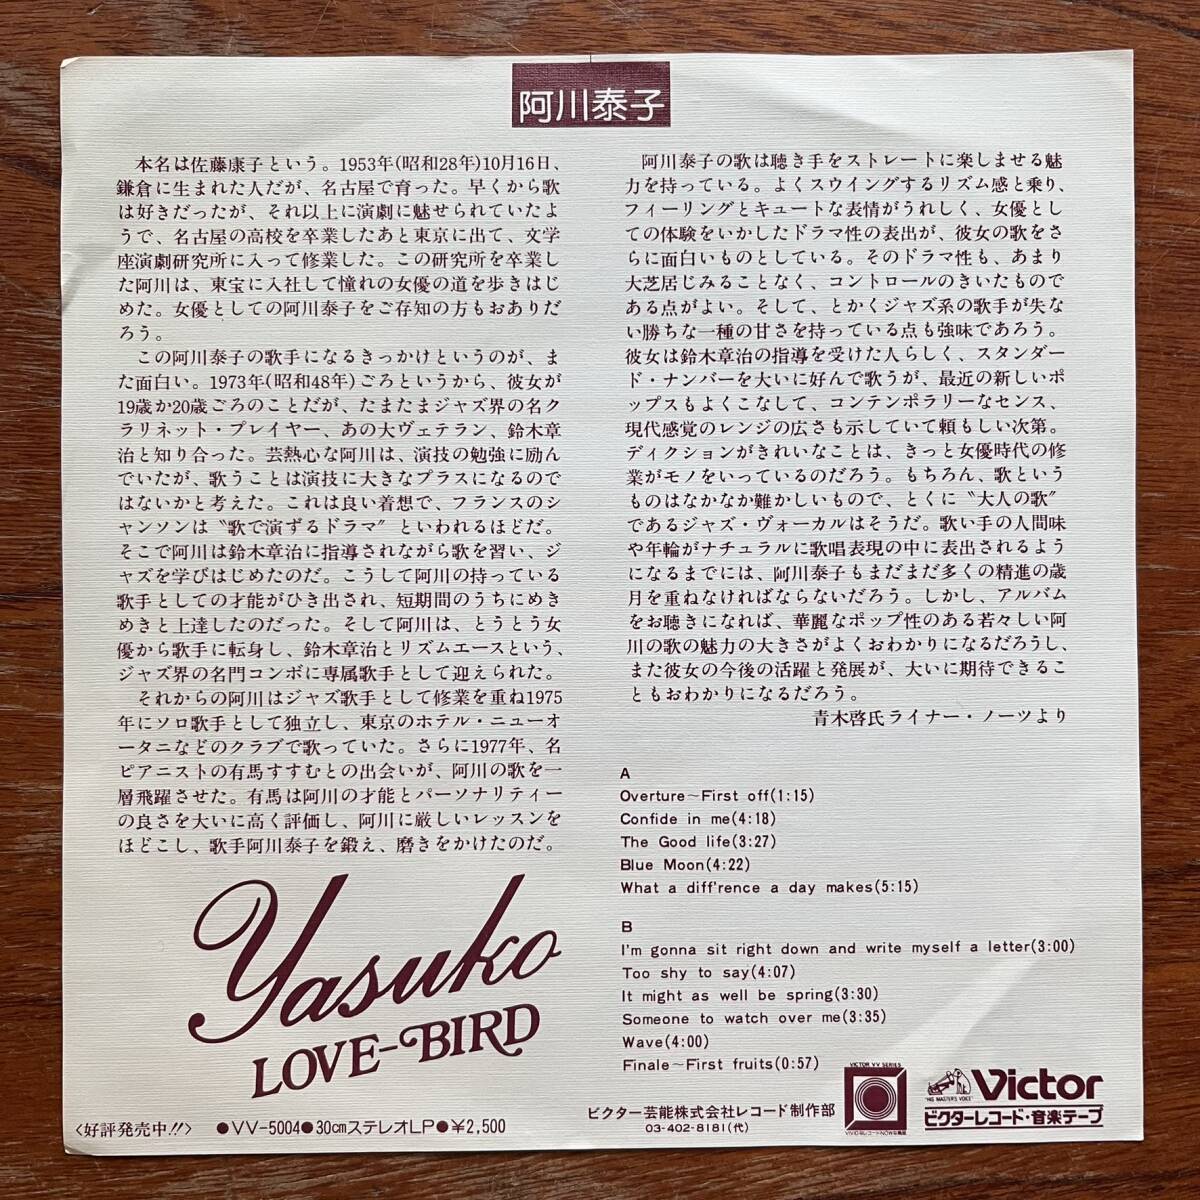 阿川泰子
本名は佐藤康子という。1953年(昭和28年)10月16日、
鎌倉に生まれた人だが、名古屋で育った。早くから歌
は好きだったが、それ以上に演劇に魅せられていたよ
うで、名古屋の高校を卒業したあと東京に出て、文学
座演劇研究所に入って修業した。この研究所を卒業し
た阿川は、東宝に入社して憧れの女優の道を歩きはじ
めた。女優としての阿川泰子をご存知の方もおありだ
ろう。
この阿川泰子の歌手になるきっかけというのが、ま
た面白い。1973年(昭和48年)ごろというから、彼女が
19歳か20歳ごろのことだが、たまたまジャズ界の名ク
ラリネット・プレイヤー、あの大ヴェテラン、鈴木章
治と知り合った。芸熱心な阿川は、演技の勉強に励ん
でいたが、歌うことは演技に大きなプラスになるので
はないかと考えた。これは良い着想で、フランスのシ
ャンソンは〝歌で演ずるドラマ〟といわれるほどだ。
そこで阿川は鈴木章治に指導されながら歌を習い、ジ
ャズを学びはじめたのだ。こうして阿川の持っている
歌手としての才能がひき出され、短期間のうちにめき
めきと上達したのだった。そして阿川は、とうとう女
優から歌手に転身し、鈴木章治とリズムエースという、
ジャズ界の名門コンボに専属歌手として迎えられた。
それからの阿川はジャズ歌手として修業を重ね1975
年にソロ歌手として独立し、東京のホテル・ニューオ
ータニなどのクラブで歌っていた。さらに1977年、名
ピアニストの有馬すすむとの出会いが、阿川の歌を一
層飛躍させた。有馬は阿川の才能とパーソナリティー
の良さを大いに高く評価し、阿川に厳しいレッスンを
ほどこし、歌手阿川泰子を鍛え、磨きをかけたのだ。
阿川泰子の歌は聴き手をストレートに楽しませる魅
力を持っている。よくスウイングするリズム感と乗り、
フィーリングとキュートな表情がうれしく、女優とし
ての体験をいかしたドラマ性の表出が、彼女の歌をさ
らに面白いものとしている。そのドラマ性も、あまり
大芝居じみることなく、コントロールのきいたもので
ある点がよい。そして、とかくジャズ系の歌手が失な
い勝ちな一種の甘さを持っている点も強味であろう。
彼女は鈴木章治の指導を受けた人らしく、スタンダー
ド・ナンバーを大いに好んで歌うが、最近の新しいポ
ップスもよくこなして、コンテンポラリーなセンス、
現代感覚のレンジの広さも示していて頼もしい次第。
ディクションがきれいなことは、きっと女優時代の修
業がモノをいっているのだろう。もちろん、歌という
ものはなかなか難かしいもので、とくに〝大人の歌〟
であるジャズ・ヴォーカルはそうだ。歌い手の人間味
や年輪がナチュラルに歌唱表現の中に表出されるよう
になるまでには、阿川泰子もまだまだ多くの精進の歳
月を重ねなければならないだろう。しかし、アルバム
をお聴きになれば、華麗なポップ性のある若々しい阿
川の歌の魅力の大きさがよくおわかりになるだろうし、
また彼女の今後の活躍と発展が、大いに期待できるこ
ともおわかりになるだろう。
青木啓氏ライナー・ノーツより
A
Overture~First off(1:15)
Confide in me(4:18)
The Good life(3:27)
Blue Moon(4:22)
What a diff'rence a day makes(5:15)
B
I'm gonna sit right down and write myself a letter(3:00)
Too shy to say(4:07)
It might as well be spring(3:30)
Someone to watch over me(3:35)
Wave(4:00)
Finale~First fruits(0:57)
Yasuko
LOVE-BIRD
〈好評発売中!!〉 ●VV-5004●30cmステレオLP●¥2,500
ビクター芸能株式会社レコード制作部
03-402-8181(代)
VICTOR VV SERIES
"HIS MASTER'S VOICE"
Victor
ビクターレコード・音楽テープ